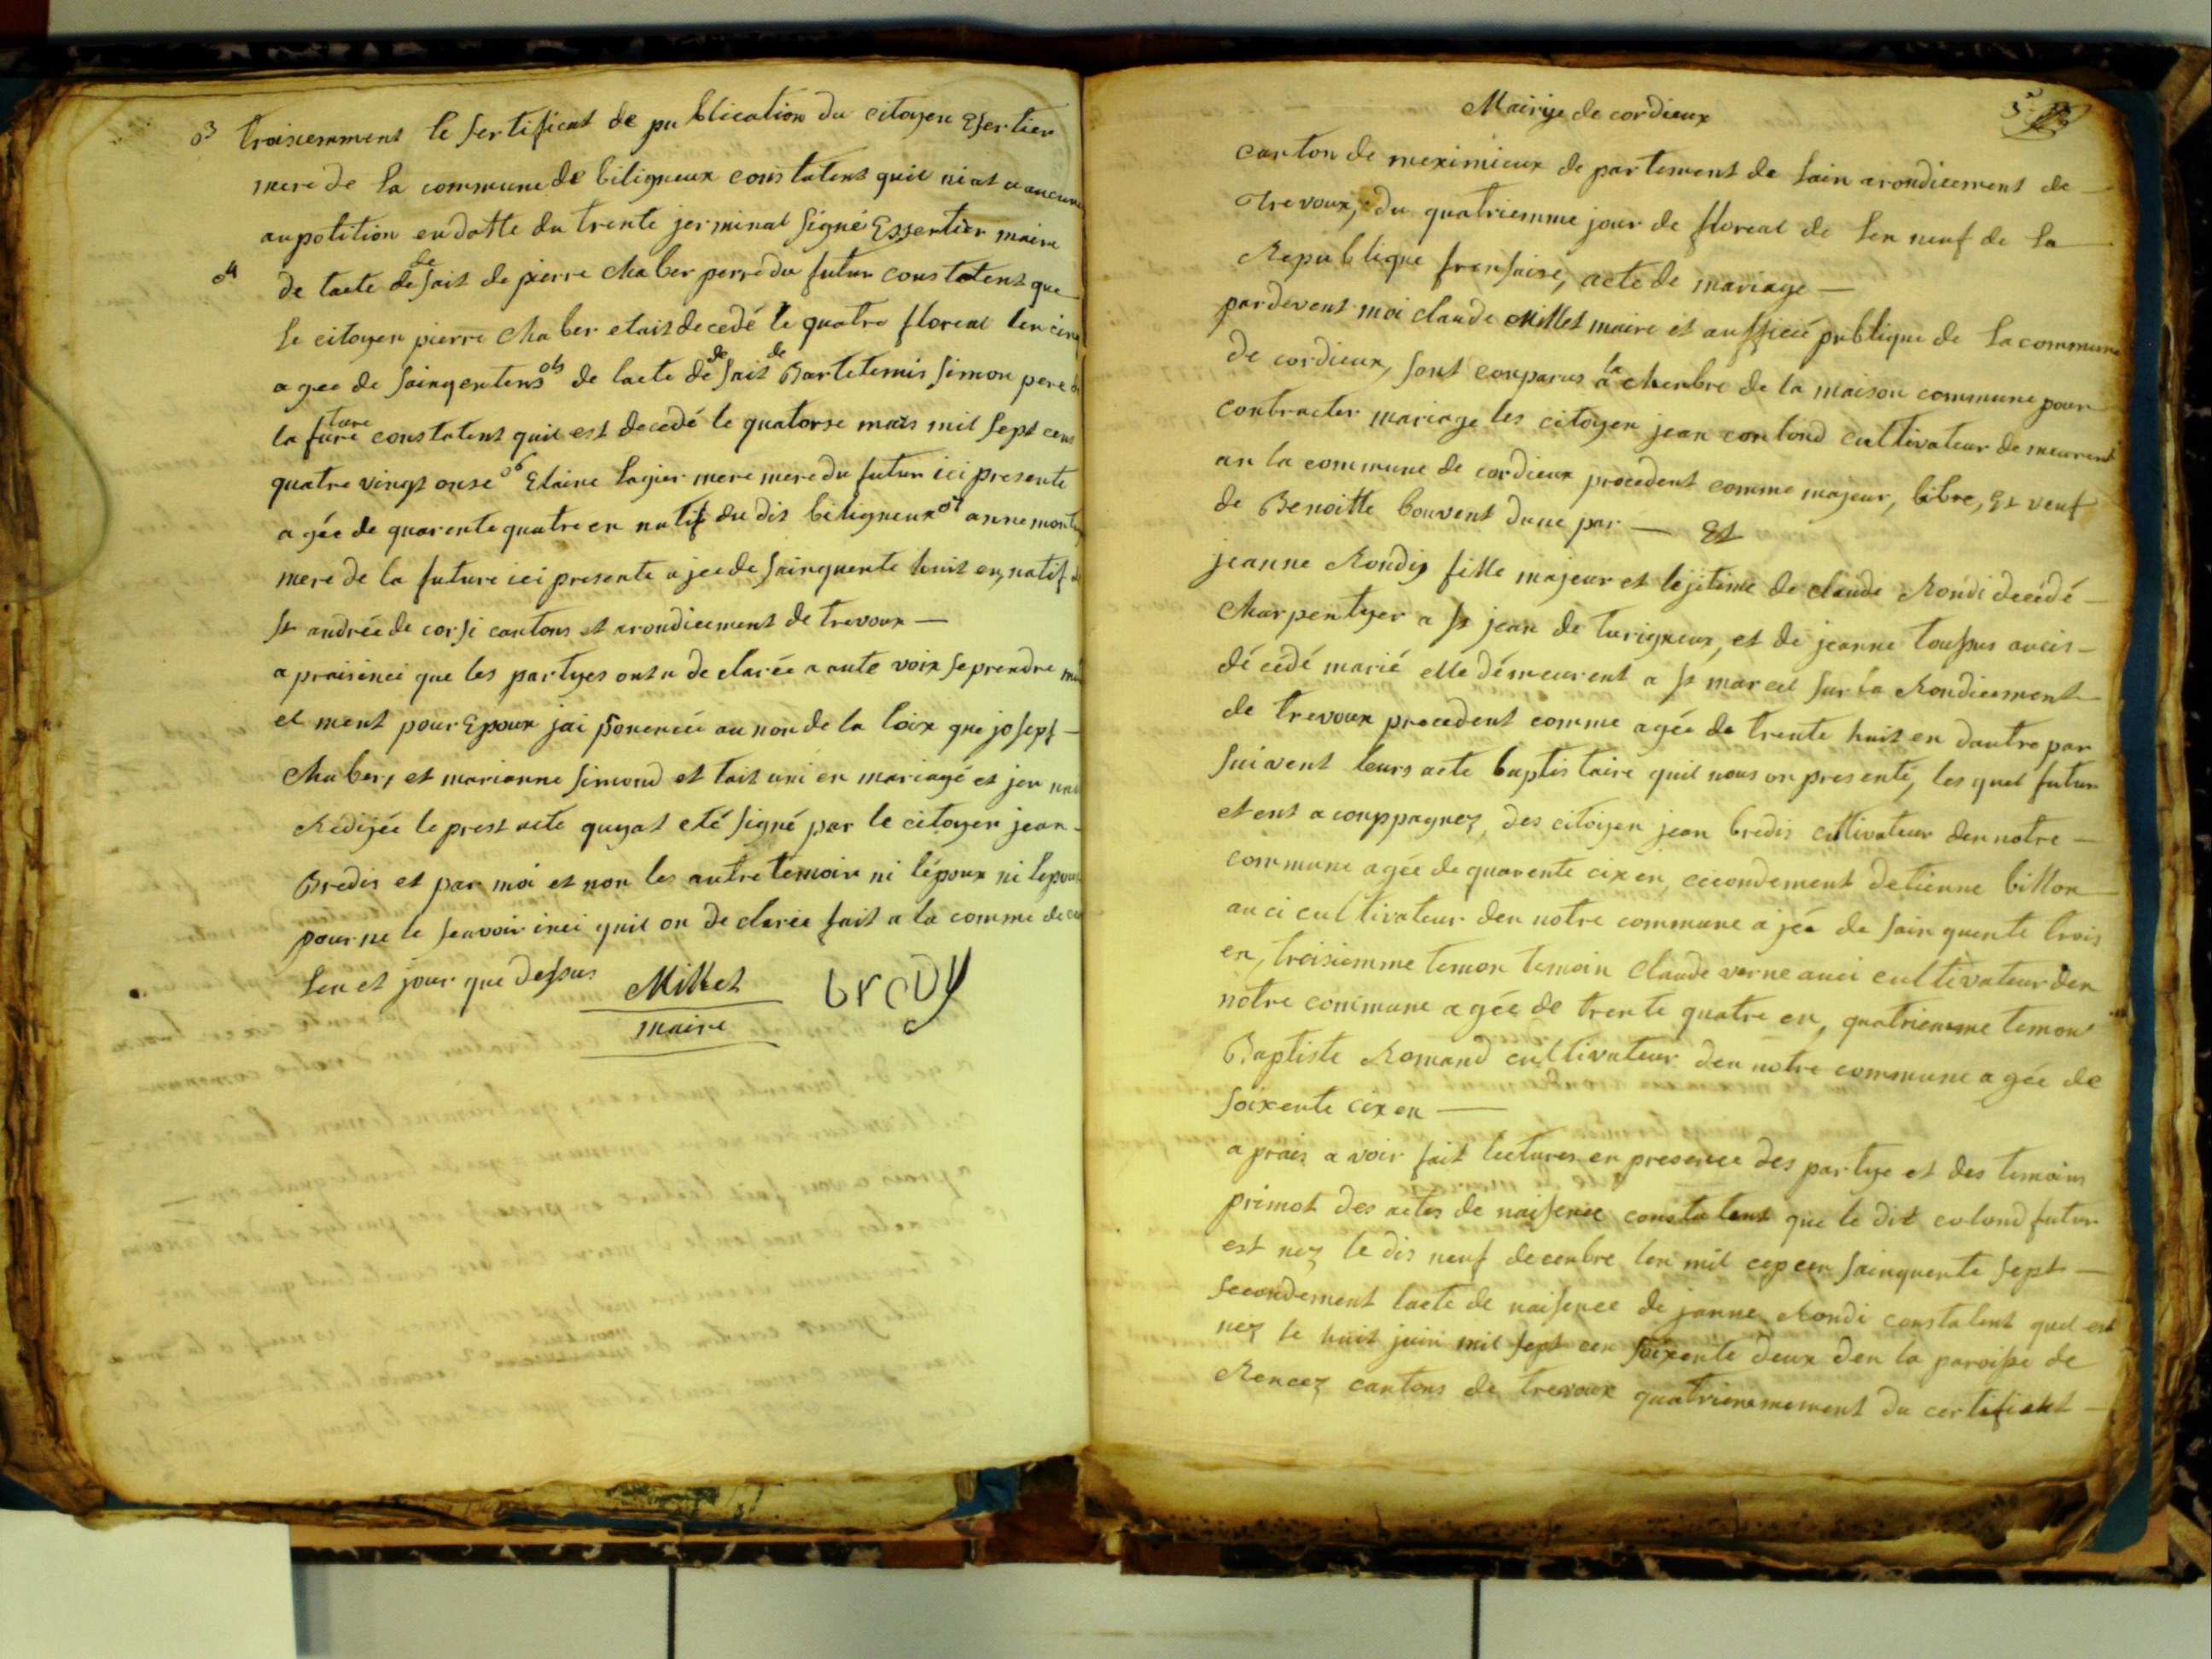 o3 troisiemment le sertificat de publication du citoyen Esertier
mere de la commune de biligneux constatent quil ni at u aucune
aupotition en datte du trente jerminal signé Essertier maire
o4 de lacte de de sait de pierre Chaber perre du futur constatent que
le citoyen pierre Chaber etait decedé le quatre floreal len cinq
agee de sainqentens o5 de lacte de de sait de Bartelemis simon pere
la future constatent quil est decedé le quatorse mars mil sept cens
quatre vingt onse o6 Elaine lagier mere mere du futur ici presente
agée de quarente quatre en natif du dis biligneux o7 anne
mere de la future ici presente ajee de sainquente huit en, natif
st andrée de corsi cantons et arondicement de trevoux —
apraisinci que les partyes ont u declarée a aute voix se prendre
el ment pour Epoux jai ponencée au non de la loix que josept —
Chaber, et marianne simond et tait uni en mariagé et jen
Redijée le prest acte quyat eté signé par le citoyen jean
Bredis et par moi et non les autre temoin ni lépoux ni lepouse
pour ne le scavoir inci quil on declarée fait a la comme de
len et jour que dessus Millet bredy
maire
Mairye de cordieux
5
canton de meximieux departement de lain arondicement de —
Trevoux, du quatriemme jour de floreal de len neuf de la
Republique fransaise, acte de mariage —
pardevent moi claude Millet maire et aufficié publique de la commune
de cordieux, sont conparus a la chenbre de la maison commune pour
contracter mariage les citoyen jean conlond cultivateur demeurent
an la commune de cordieux procedent comme majeur, libre, Et veuf
de Benoitte bouvent dune par — Et
jeanne Rondis fille majeur et lejitime de claude Rondi decédé —
Charpentyer a st jean de turigneux, et de jeanne toussus aucis —
décédé marié elle démeurent a st marcel sur la Rondicement
de trevoux procedent comme agée de trente huit en dautre par
suivent leurs acte baptistaire quil nous on presenté, les quel futur
etent aconppagnez, des citoyen jean bredis cultivateur den notre —
commune agée de quarente cix en, cecondement detienne billon
auci cultivateur den notre commune ajée de sainquente trois
en, troisiemme temon temoin Claude verne auci cultivateur den
notre commune agée de trente quatre en, quatriemme temon
Baptiste Romand cultivateur den notre commune agée de
soixente cix en —
aprais avoir fait lectures en presence des partye et des temoins
primot des actes de naisence constatent que le dit colond futur
est nez le dis neuf decenbre len mil cepcen sainquente sept —
secondement lacte de naisence de janne Rondi constatent quel est
nez le huit juin mil sept cen soixente deux den la paroisse de
Rencez cantons de trevoux quatriememment du certificat —